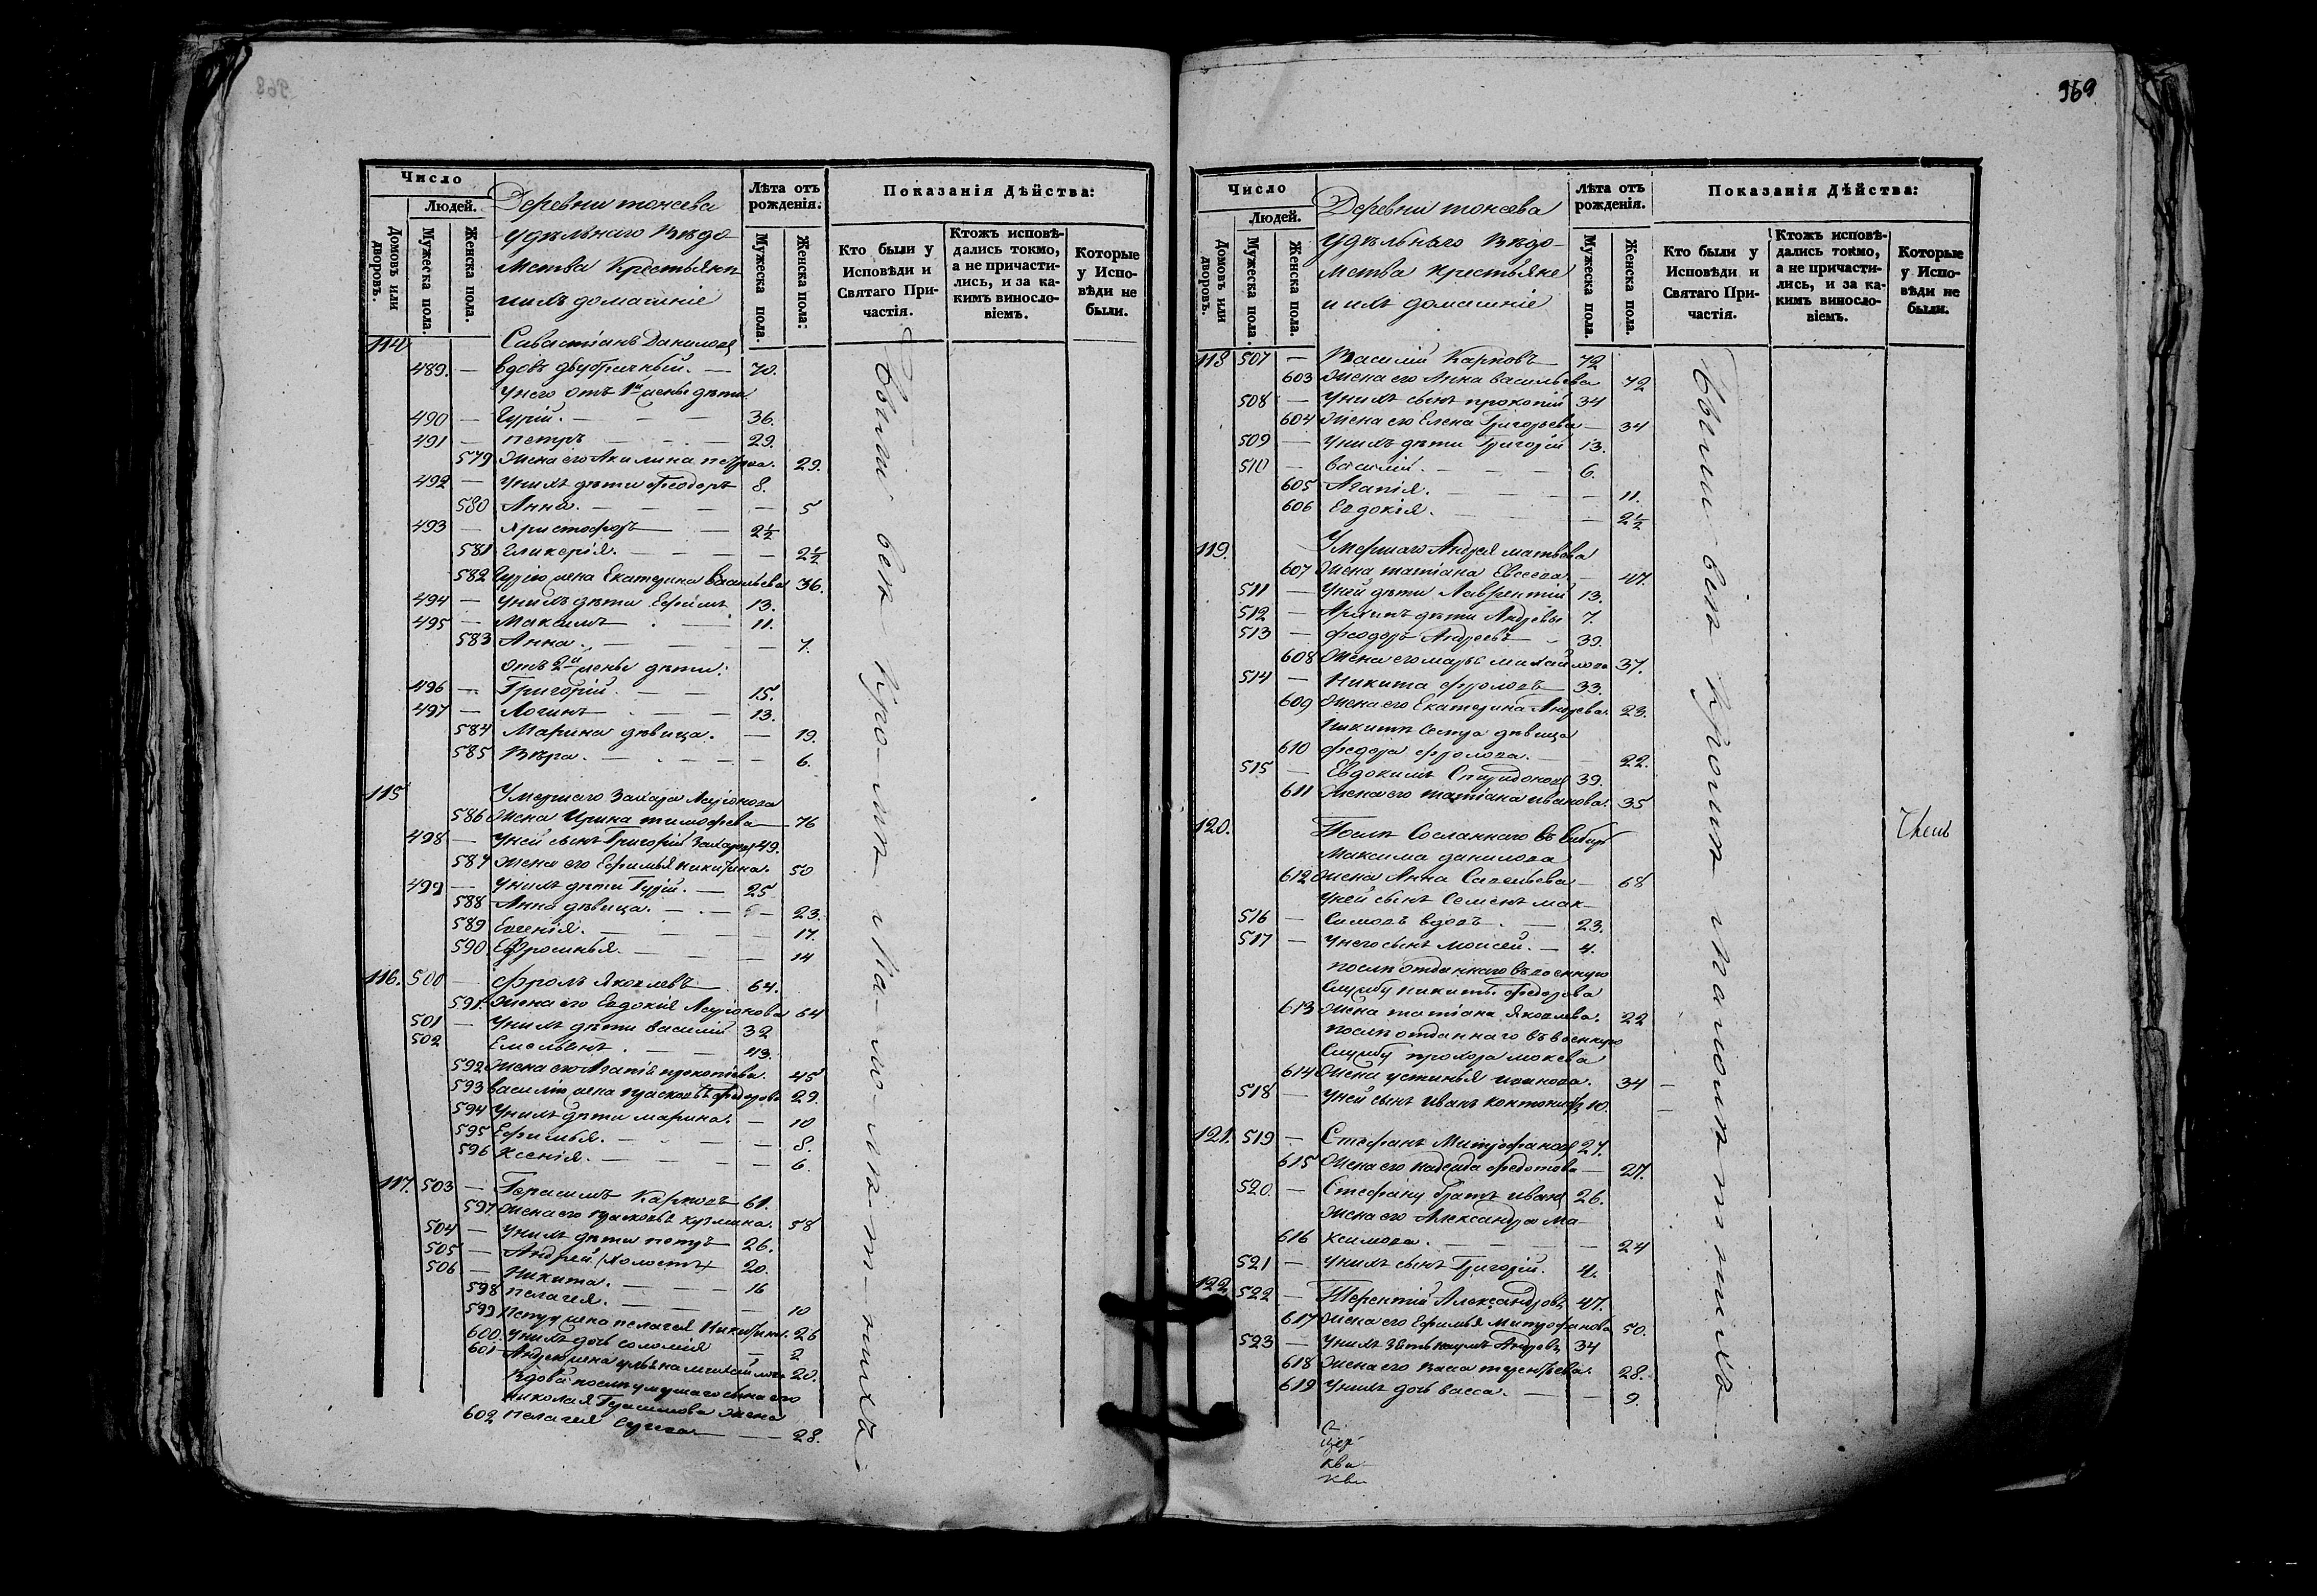 968
Число
Людей.
Домовъ или дворовъ.
Мужеска пола.
Женска пола.
Деревни тожсева
Удѣльнаго Вѣдо-
мства Крестьяне
и ихъ домашніе
Лѣта отъ рожденія.
Мужеска пола.
Женска пола.
Показанія Дѣйства:
Кто были у Исповѣди и Святаго Причастія.
Ктожъ исповѣдались токмо, а не причастились, и за какимъ винословіемъ.
Которые у Исповѣди не были.
114 Савастіанъ Даниловъ
489. — вдовъ двубрачный. — 70.
У него отъ 1й жены дѣти
490 — Гурій. — 36.
491 — Петръ — 29.
579 Жена его Акилина петрова. 29.
492 — У нихъ дѣти Ѳеодоръ 8.
580 Анна. — 5
493 — Христофоръ — 2½
581 Гликерія. — 2½
582 Гурію жена Екатерина Васильева 36.
494 — У нихъ дѣти Ефимъ 13.
495 — Максимъ — 11.
583 Анна. — 7.
отъ 2й жены дѣти:
496 — Григорій. — 15.
497 — Логинъ — 13.
584 Марина дѣвица. — 19.
585 Вѣра. — 6.
115 Умершаго Захара
586 Жена Ирина тимофеева — 76
498 — У ней сынъ Григорій Захаровъ 49.
587 Жена его Ефимья никитина. 50
499 — У нихъ дѣти Гурій. — 25
588 Анна дѣвица. — 23.
589 Евгенія. — 17.
590. Ефросинья. — 14
116. 500 — Фролъ Яковлевъ 64.
591. Жена его Евдокія 64
501 — У нихъ дѣти василій 32
502 Емельянъ. — 43.
592 Жена его Агапія прокопіева. 45
593 Василію жена Прасковья Федорова 29.
594 У нихъ дѣти марина. — 10
595 Ефимья. — 8.
596 Ксенія. — 6.
117. 503 — Герасимъ Карповъ 61.
597. Жена его Прасковья кузмина. 58
504 — У нихъ дѣти петръ 26.
505 — Андрей (холостъ) 20.
506 — Никита. — 16
598 Пелагея. — 10
599 Петру жена пелагея Никитина. 26
600. У нихъ дочь соломія — 2
601 Андрею жена ульяна михайлова 20.
Вдова послѣ умершаго сына его
николая Герасимова жена
602 Пелагея — 28.
были всѣ кро-мѣ
969
Число
Людей.
Домовъ или дворовъ.
Мужеска пола.
Женска пола.
Деревни тожсева
Удѣльнаго Вѣдо-
мства крестьяне
и ихъ домашніе
Лѣта отъ рожденія.
Мужеска пола.
Женска пола.
Показанія Дѣйства:
Кто были у Исповѣди и Святаго Причастія.
Ктожъ исповѣдались токмо, а не причастились, и за какимъ винословіемъ.
Которые у Исповѣди не были.
118 507 — Василій Карповъ 72
603 Жена его Анна васильева 72
508 — У нихъ сынъ прокопій 34
604 Жена его Елена Григорьева — 34
509 — У нихъ дѣти Григорій 13.
510 — Василій. — 6.
605 Агапія. — 11.
606 Евдокія. — 2½
119. Умершаго Андрея матвѣева
607 Жена татіана Евсеева — 47.
511 — У ней дѣти Лаврентій 13.
512 — Архипъ дѣти Андрѣевы 7.
513 — Феодоръ Андреевъ — 39.
608 Жена его марья михайлова 37.
514 — Никита Фроловъ 33.
609 Жена его Екатерина Андрѣева. 23.
Никитѣ сестра дѣвица
610 федора фролова. — 22.
515 — Евдокимъ Спиридоновъ 39.
611 Жена его татіана иванова. 35
120. Послѣ Сосланнаго въ Сибирь
Максима данилова
612 Жена Анна Савельева — 68
У ней сынъ Семенъ мак-
516 — симовъ вдовъ. — 23.
517 — У него сынъ Моисей. — 4.
послѣ отданнаго въ военную
службу никиты Федорова
613 Жена татіана Яковлева. 22
послѣ отданнаго въ военную
службу прохора мокѣева
614 Жена устинья иванова. 34 —
518 — У ней сынъ иванъ 10.
121. 519 — Стефанъ Митрофановъ 27.
615 Жена его надежда федотова — 27.
520. — Стефану братъ иванъ 26.
Жена его Александра Ма-
616 ксимова. — 24
521 — У нихъ сынъ Григорій. 4.
122 522 — Терентій Александровъ 47.
617 Жена его Ефимья Митрофанова 50.
523 — У нихъ зять наумъ Андреевъ 34
618 Жена его васса терентьева. 28.
619 У нихъ дочь васса. — 9.
были всѣ кромѣ
цер
ква
кви